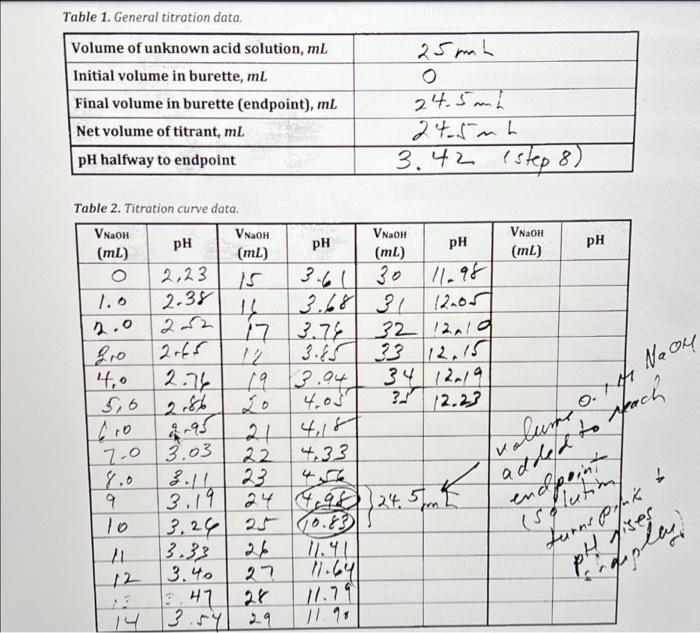 Table 1. General titration data.
Volume of unknown acid solution, mL 25 mL
Initial volume in burette, mL 0
Final volume in burette (endpoint), mL 24.5 mL
Net volume of titrant, mL 24.5 mL
pH halfway to endpoint 3.42 (step 8)
Table 2. Titration curve data.
VNaOH (mL) pH VNaOH (mL) pH VNaOH (mL) pH VNaOH (mL) pH
0 2,23 15 3.61 30 11.98
1.0 2.38 16 3.68 31 12.05
2.0 2.52 17 3.76 32 12.10
3.0 2.65 18 3.85 33 12.15
4,0 2.76 19 3.94 34 12.19
5,0 2.86 20 4.05 35 12.23
6.0 2.95 21 4,18
7.0 3.03 22 4.33
8.0 3.11 23 4.56
9 3.19 24 4.98 } 24.5 mL
10 3.26 25 10.83
11 3.33 26 11.41
12 3.40 27 11.64
.47 28 11.79
14 3.54 29 11.90
volume 0.1 M NaOH
added to reach
endpoint
(solution
turns pink &
pH rises
sharply)